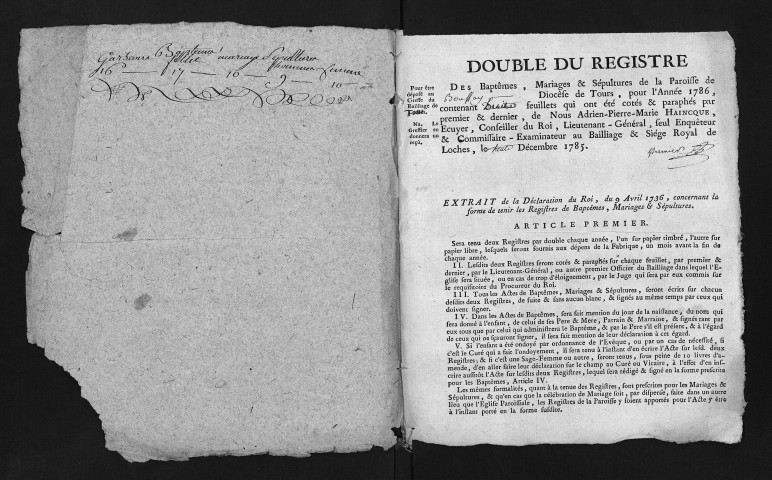 Garsons Baptemes fille mariage Sepulture hommes femme
16 — 17 — 16 — 9 — 10
DOUBLE DU REGISTRE
Pour être
déposé au
Greffe du
Bailliage de
Na. Le
Greffier en
donnera un
reçu.
DES Baptêmes, Mariages & Sépultures de la Paroisse de
Diocèse de Tours, pour l'Année 1786,
contenant feuillets qui ont été cotés & paraphés par
premier & dernier, de Nous Adrien-Pierre-Marie HAINCQUE,
Ecuyer, Conseiller du Roi, Lieutenant-Général, seul Enquêteur
& Commissaire-Examinateur au Bailliage & Siége Royal de
Loches, le Décembre 1785.
premier
EXTRAIT de la Déclaration du Roi, du 9 Avril 1736, concernant la
forme de tenir les Registres de Baptêmes, Mariages & Sépultures.
ARTICLE PREMIER.
Sera tenu deux Registres par double chaque année, l'un sur papier timbré, l'autre sur
papier libre, lesquels seront fournis aux dépens de la Fabrique, un mois avant la fin de
chaque année.
II. Lesdits deux Registres seront cotés & paraphés sur chaque feuillet, par premier &
dernier, par le Lieutenant-Général, ou autre premier Officier du Bailliage dans lequel l'E-
glise sera située, ou en cas de trop d'éloignement, par le Juge qui sera par eux commis sur
le requisitoire du Procureur du Roi.
III. Tous les Actes de Baptêmes, Mariages & Sépultures, seront écrits sur chacun
desdits deux Registres, de suite & sans aucun blanc, & signés au même temps par ceux qui
doivent signer.
IV. Dans les Actes de Baptêmes, sera fait mention du jour de la naissance, du nom qui
sera donné à l'enfant, de celui de ses Pere & Mere, Parrain & Marraine, & signés tant par
eux tous que par celui qui administrera le Baptême, & par le Pere s'il est présent, & à l'égard
de ceux qui ne sçauront signer, il sera fait mention de leur déclaration à cet égard.
V. Si l'enfant a été ondoyé par ordonnance de l'Evêque, ou par un cas de nécessité, si
c'est le Curé qui a fait l'ondoyement, il sera tenu à l'instant d'en écrire l'Acte sur lesd. deux
Registres; & si c'est une Sage-Femme ou autre, seront tenus, sous peine de 10 livres d'a-
mende, d'en aller faire leur déclaration sur le champ au Curé ou Vicaire, à l'effet d'en ins-
crire aussitôt l'Acte sur lesdits deux Registres, lequel sera rédigé & signé en la forme prescrite
pour les Baptêmes, Article IV.
Les mêmes formalités, quant à la tenue des Registres, sont prescrites pour les Mariages &
Sépultures, & qu'en cas que la célébration de Mariage soit, par dispense, faite dans un autre
lieu que l'Eglise Paroissiale, les Registres de la Paroisse y soient apportés pour l'Acte y être
à l'instant porté en la forme susdite.